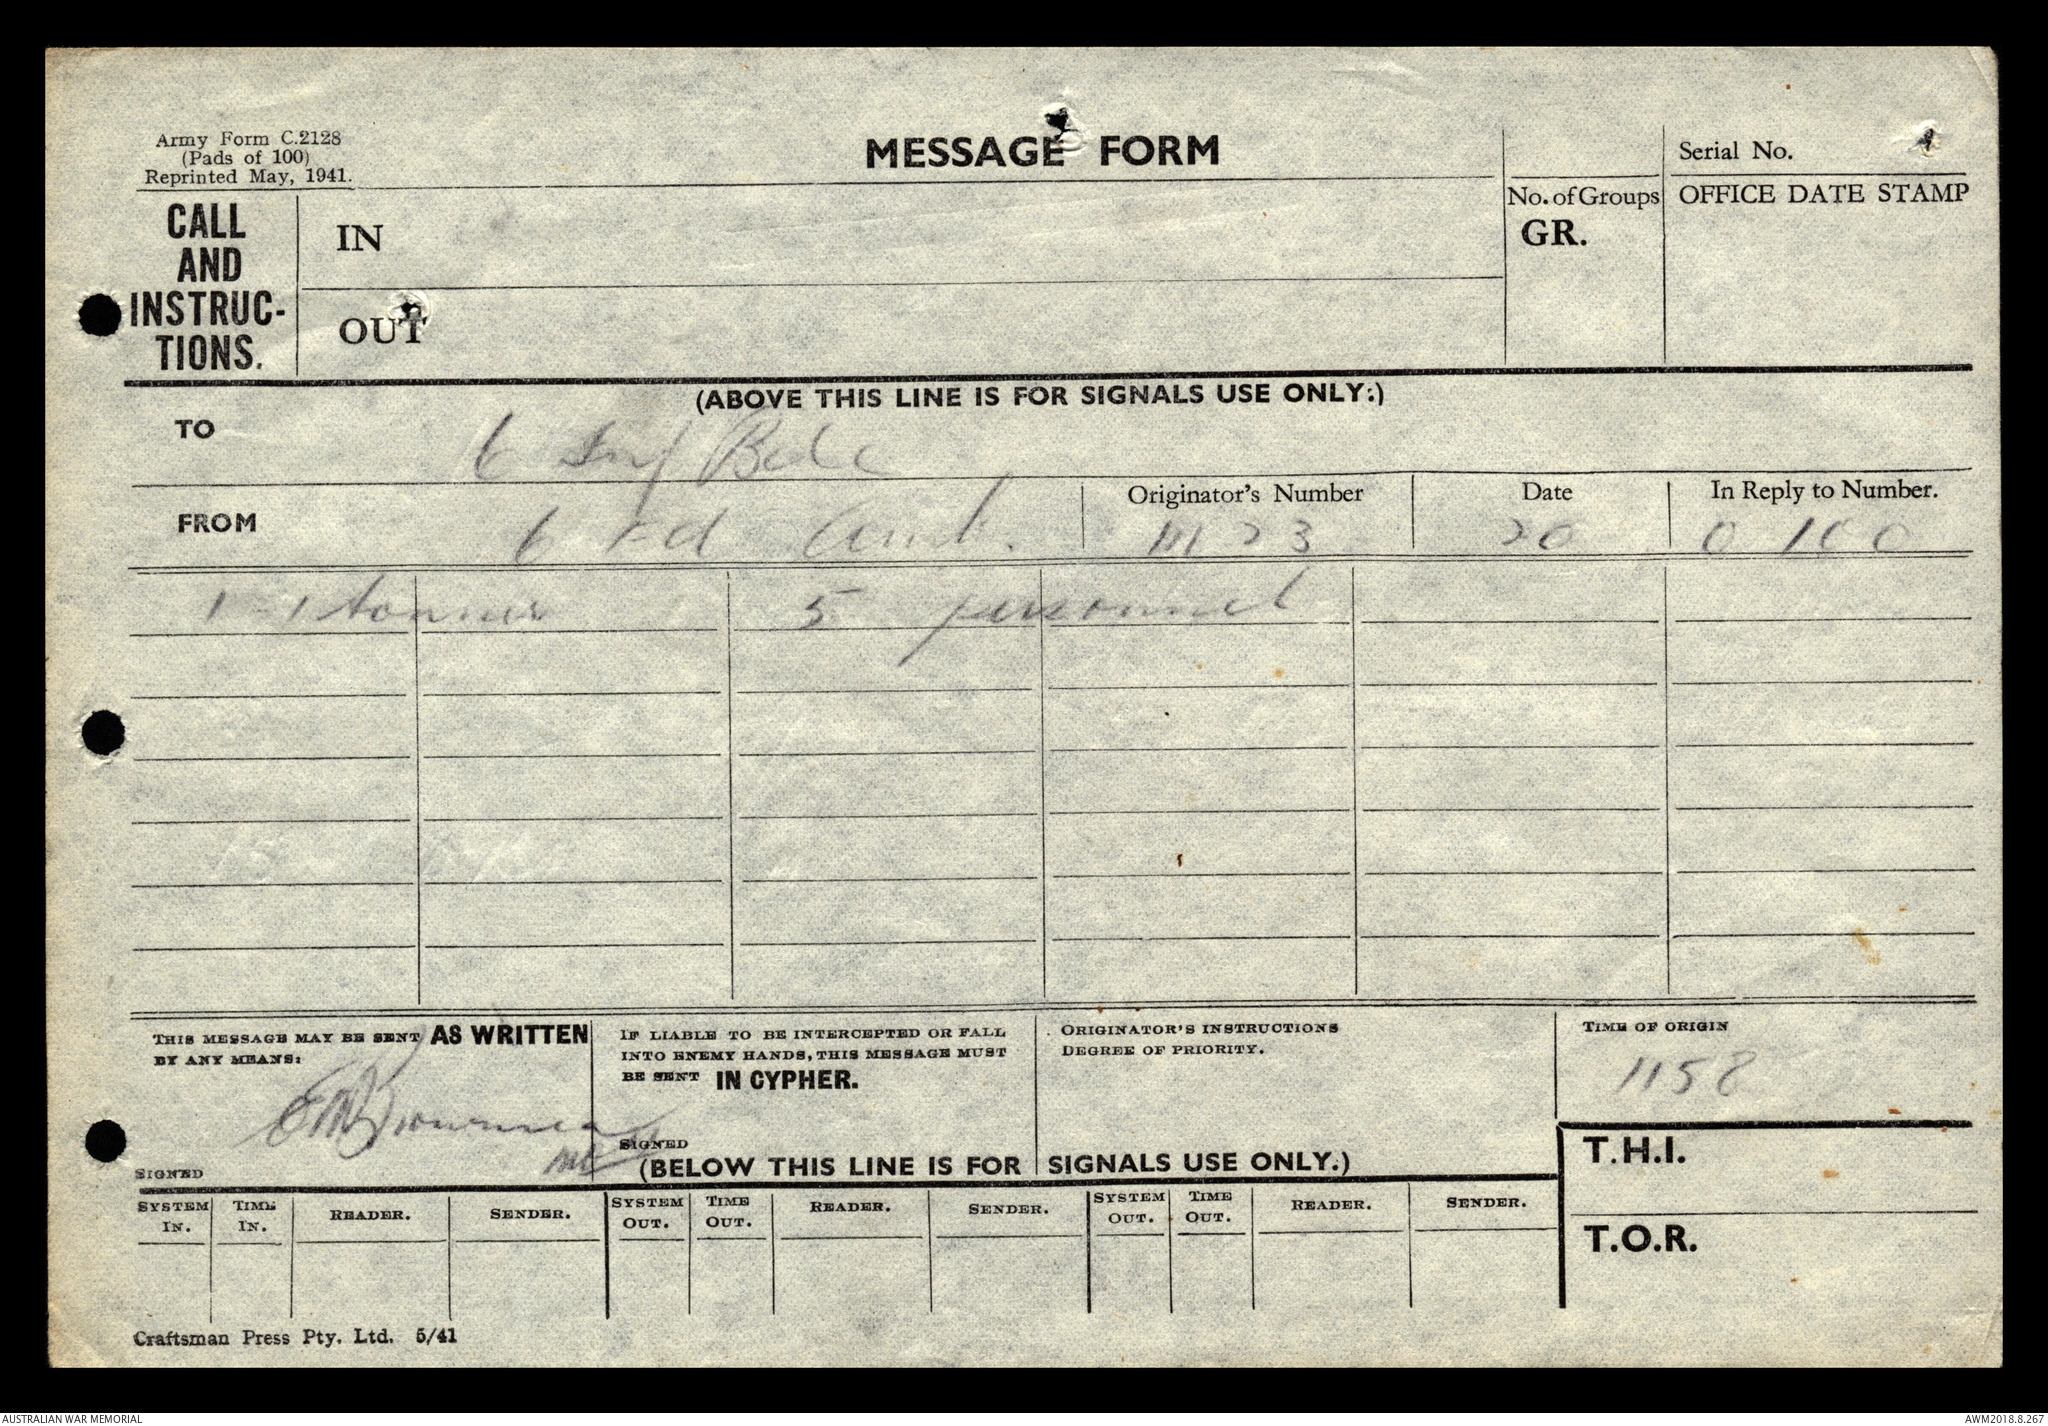 Army Form C.2128
(Pads of 100)
Reprinted May, 1941.
MESSAGE FORM
Serial No.
CALL
AND
INSTRUC-
TIONS.
IN
OUT
No. of Groups
GR.
OFFICE DATE STAMP
(ABOVE THIS LINE IS FOR SIGNALS USE ONLY.)
TO 6 Inf Bde
FROM 6 Fd Amb.
Originator's Number
M 23
Date
20
In Reply to Number.
O 100
1 - 1 tonner 5 personnel
THIS MESSAGE MAY BE SENT AS WRITTEN
BY ANY MEANS:
SIGNED
IF LIABLE TO BE INTERCEPTED OR FALL
INTO ENEMY HANDS, THIS MESSAGE MUST
BE SENT IN CYPHER.
SIGNED
ORIGINATOR'S INSTRUCTIONS
DEGREE OF PRIORITY.
TIME OF ORIGIN
1158
(BELOW THIS LINE IS FOR SIGNALS USE ONLY.)
T.H.I.
T.O.R.
SYSTEM IN. TIME IN. READER. SENDER. SYSTEM OUT. TIME OUT. READER. SENDER. SYSTEM OUT. TIME OUT. READER. SENDER.
Craftsman Press Pty. Ltd. 5/41
AUSTRALIAN WAR MEMORIAL
AWM2018.8.267